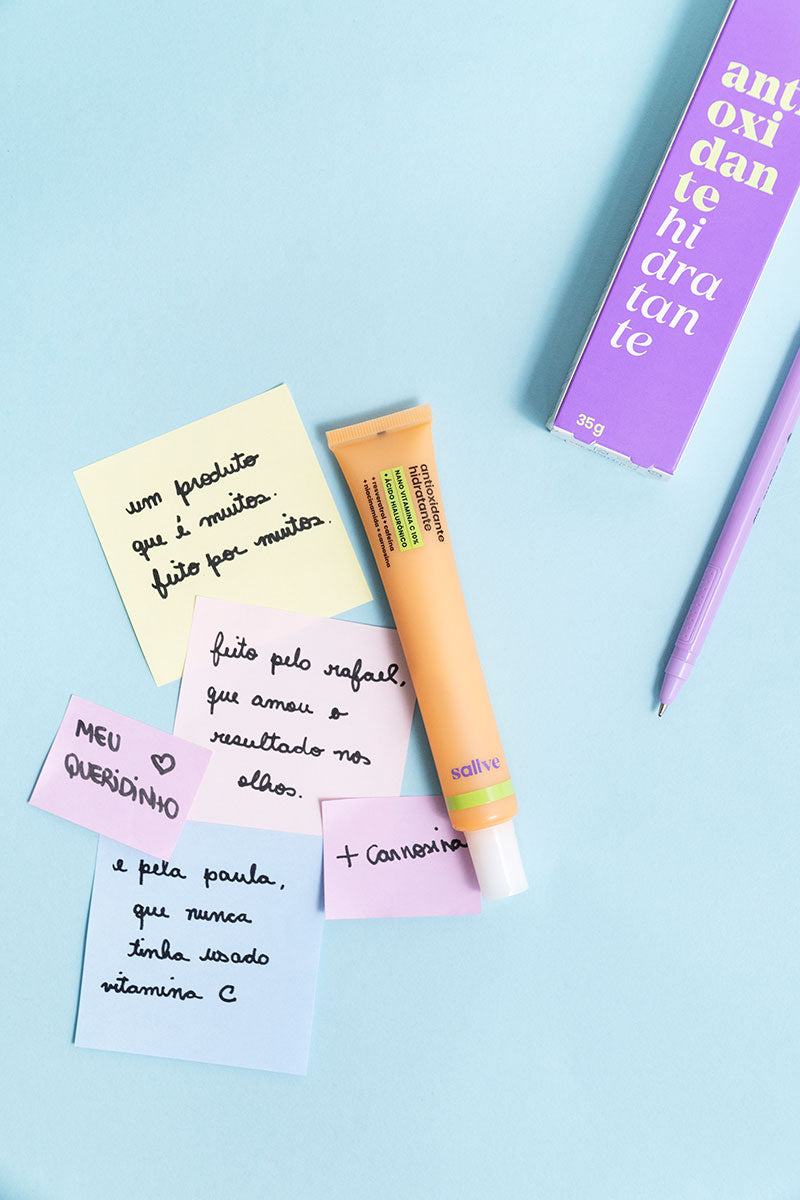 anti
oxi
dan
te
hi
dra
tan
te
35g
um produto
que é muitos.
feito por muitos.
antioxidante
hidratante
NANO VITAMINA C 10%
+ ÁCIDO HIALURÔNICO
+ resveratrol + cafeína
+ niacinamida + carnosina
sallve
feito pelo rafael,
que amou o
resultado nos
olhos.
MEU ♡
QUERIDINHO
+ Carnosina
e pela paula,
que nunca
tinha usado
vitamina C